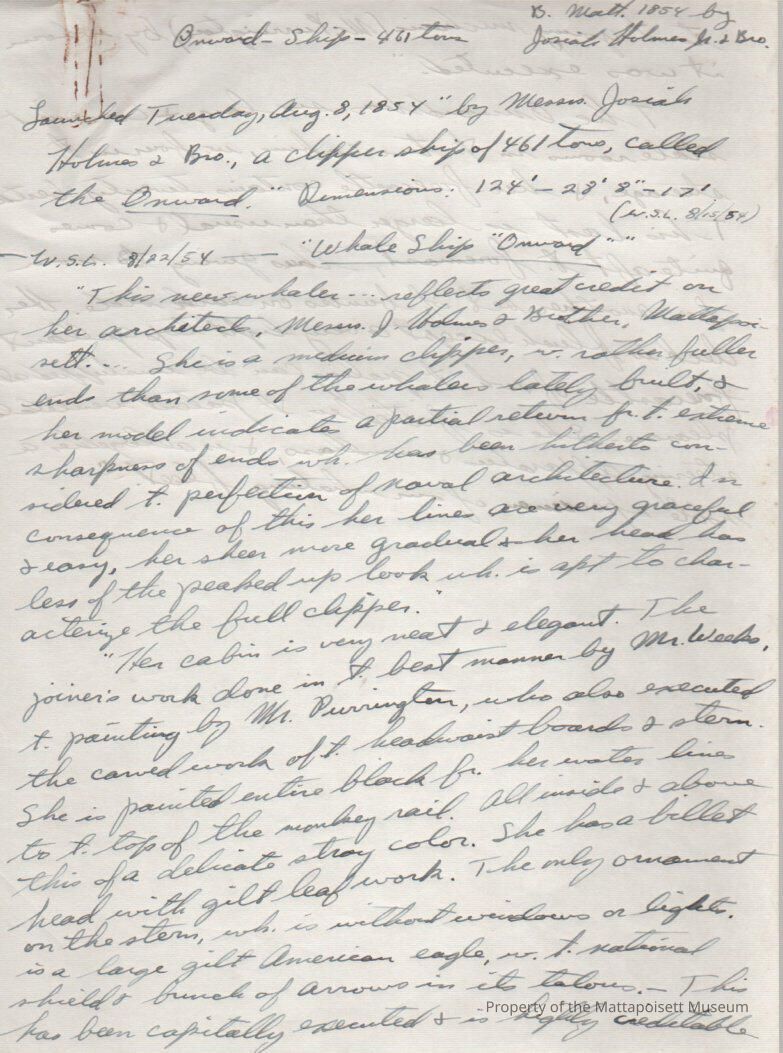 B. Matt. 1854 by
Onward - Ship - 461 tons
Josiah Holmes Jr. & Bro.
Launched Tuesday, Aug. 8, 1854 "by Messrs. Josiah
Holmes & Bro., a clipper ship of 461 tons, called
the Onward." Dimensions: 124' - 28' 8" - 17'
(W.S.L. 8/15/54)
- W.S.L. 8/22/54 - "Whale Ship "Onward""
"This new whaler ... reflects great credit on
her architects, Messrs. J. Holmes & Brother, Mattapoi-
sett. ... She is a medium clipper, w. rather fuller
ends than some of the whalers lately built, &
her model indicates a partial return fr. t. extreme
sharpness of ends wh. has been hitherto con-
sidered t. perfection of naval architecture. In
consequence of this her lines are very graceful
& easy, her sheer more gradual & her head has
less of the peaked up look wh. is apt to char-
acterize the full clipper."
"Her cabin is very neat & elegant. The
joiner's work done in t. best manner by Mr. Weeks,
t. painting by Mr. Purrington, who also executed
the carved work of t. headwaist boards & stern.
She is painted entire black fr. her water lines
to t. top of the monkey rail. All inside & above
this of a delicate straw color. She has a billet
head with gilt leaf work. The only ornament
on the stern, wh. is without windows or lights,
is a large gilt American eagle, w. t. national
shield & bunch of arrows in its talons. - This
has been capitally executed & is highly creditable
Property of the Mattapoisett Museum